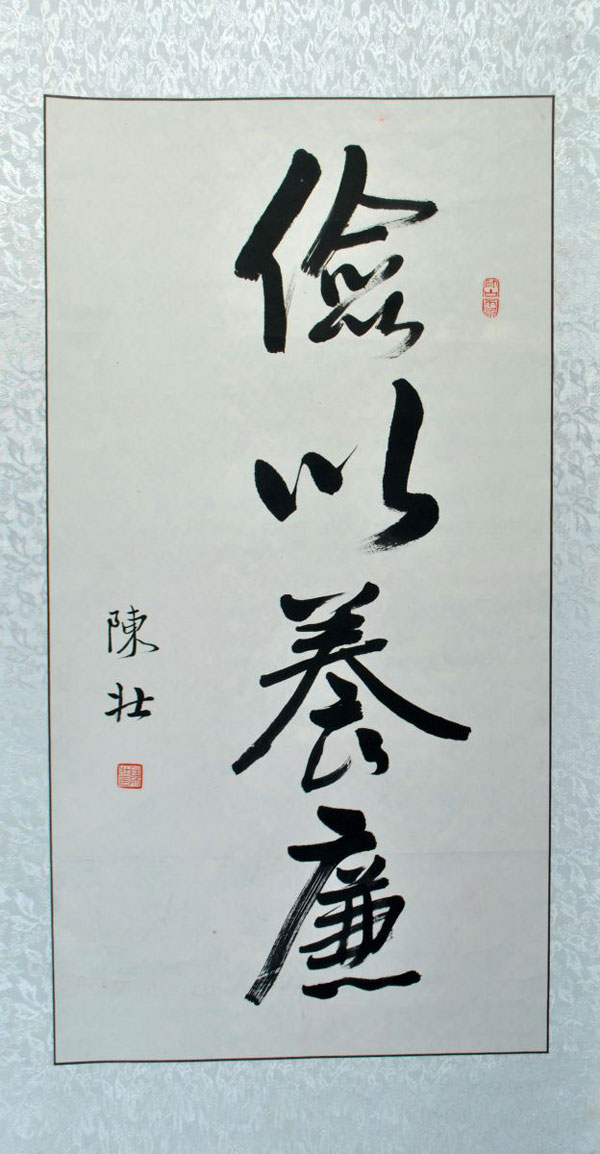 儉以養廉
陳壯